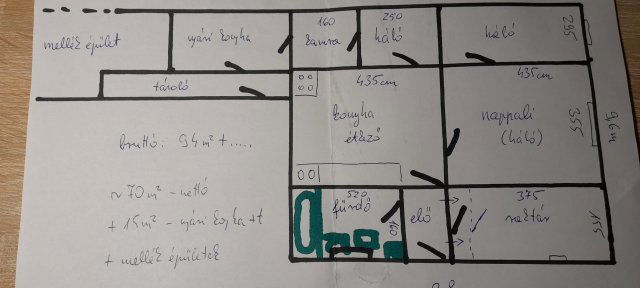 160
250
295
mellék épület
nyári konyha
kamra
háló
háló
tároló
435cm
435cm
konyha
étkező
nappali
(háló)
355
9,6m
bruttó: 94m² +.....
~70m² - nettó
+ 15m² - nyári konyha + t
+ mellék épületek
520
fürdő
160
elő
375
raktár
155